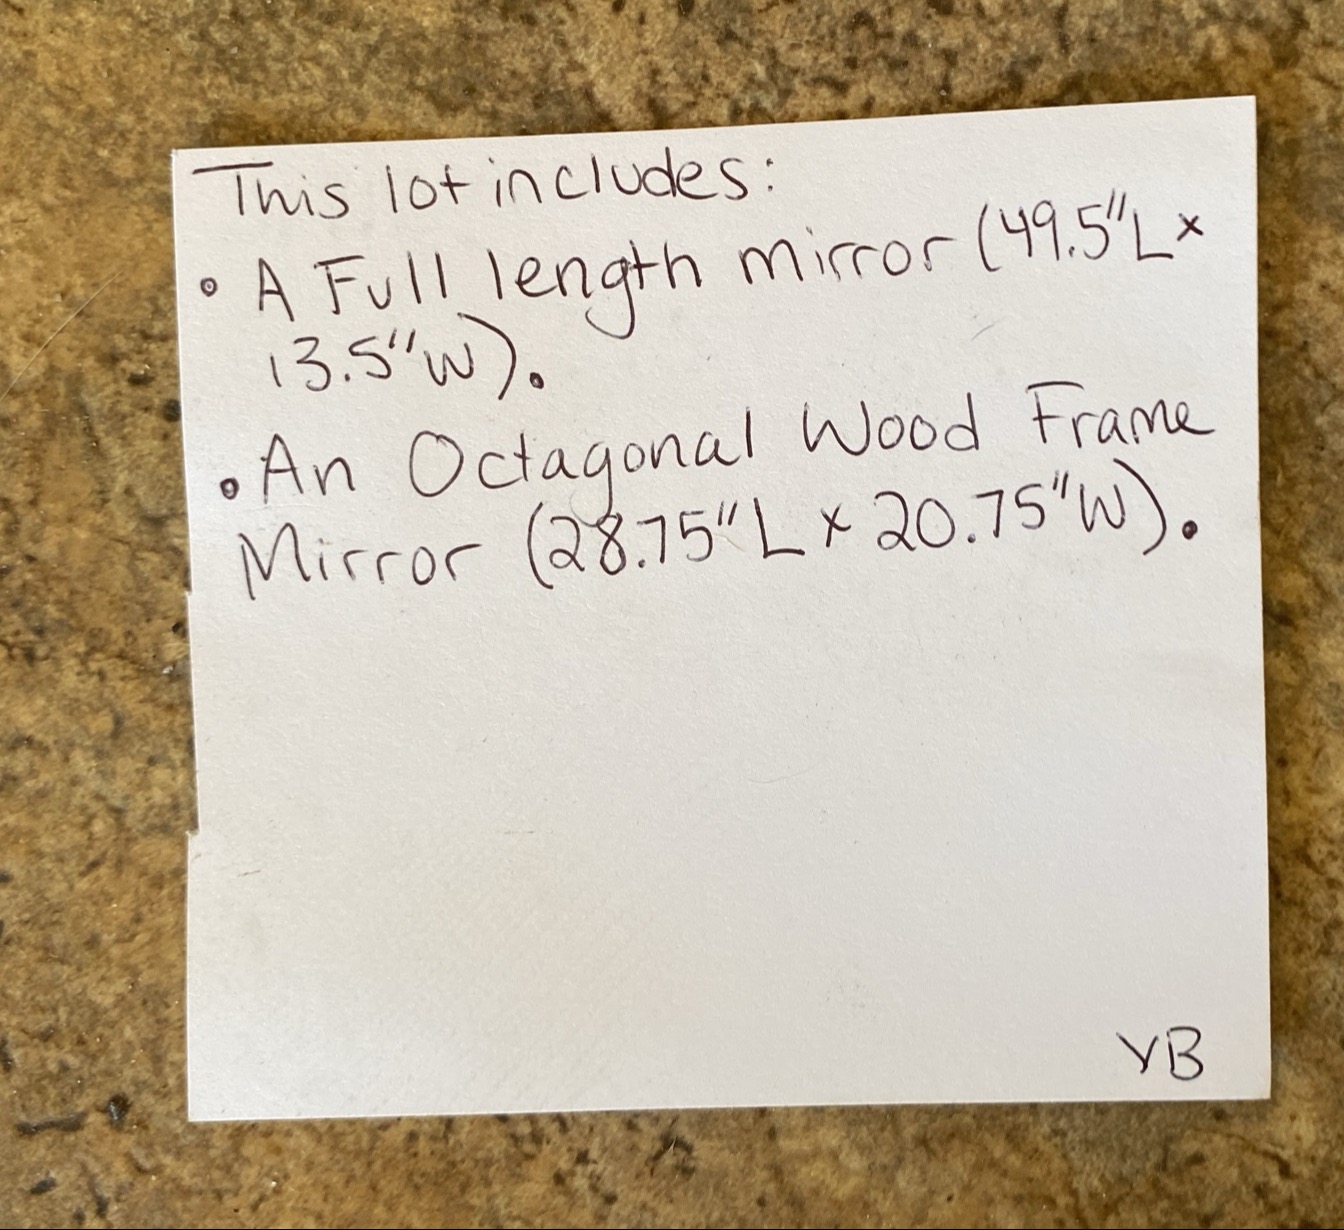 This lot includes:
• A Full length mirror (49.5"L x
13.5"W).
• An Octagonal Wood Frame
Mirror (28.75"L x 20.75"W).
YB